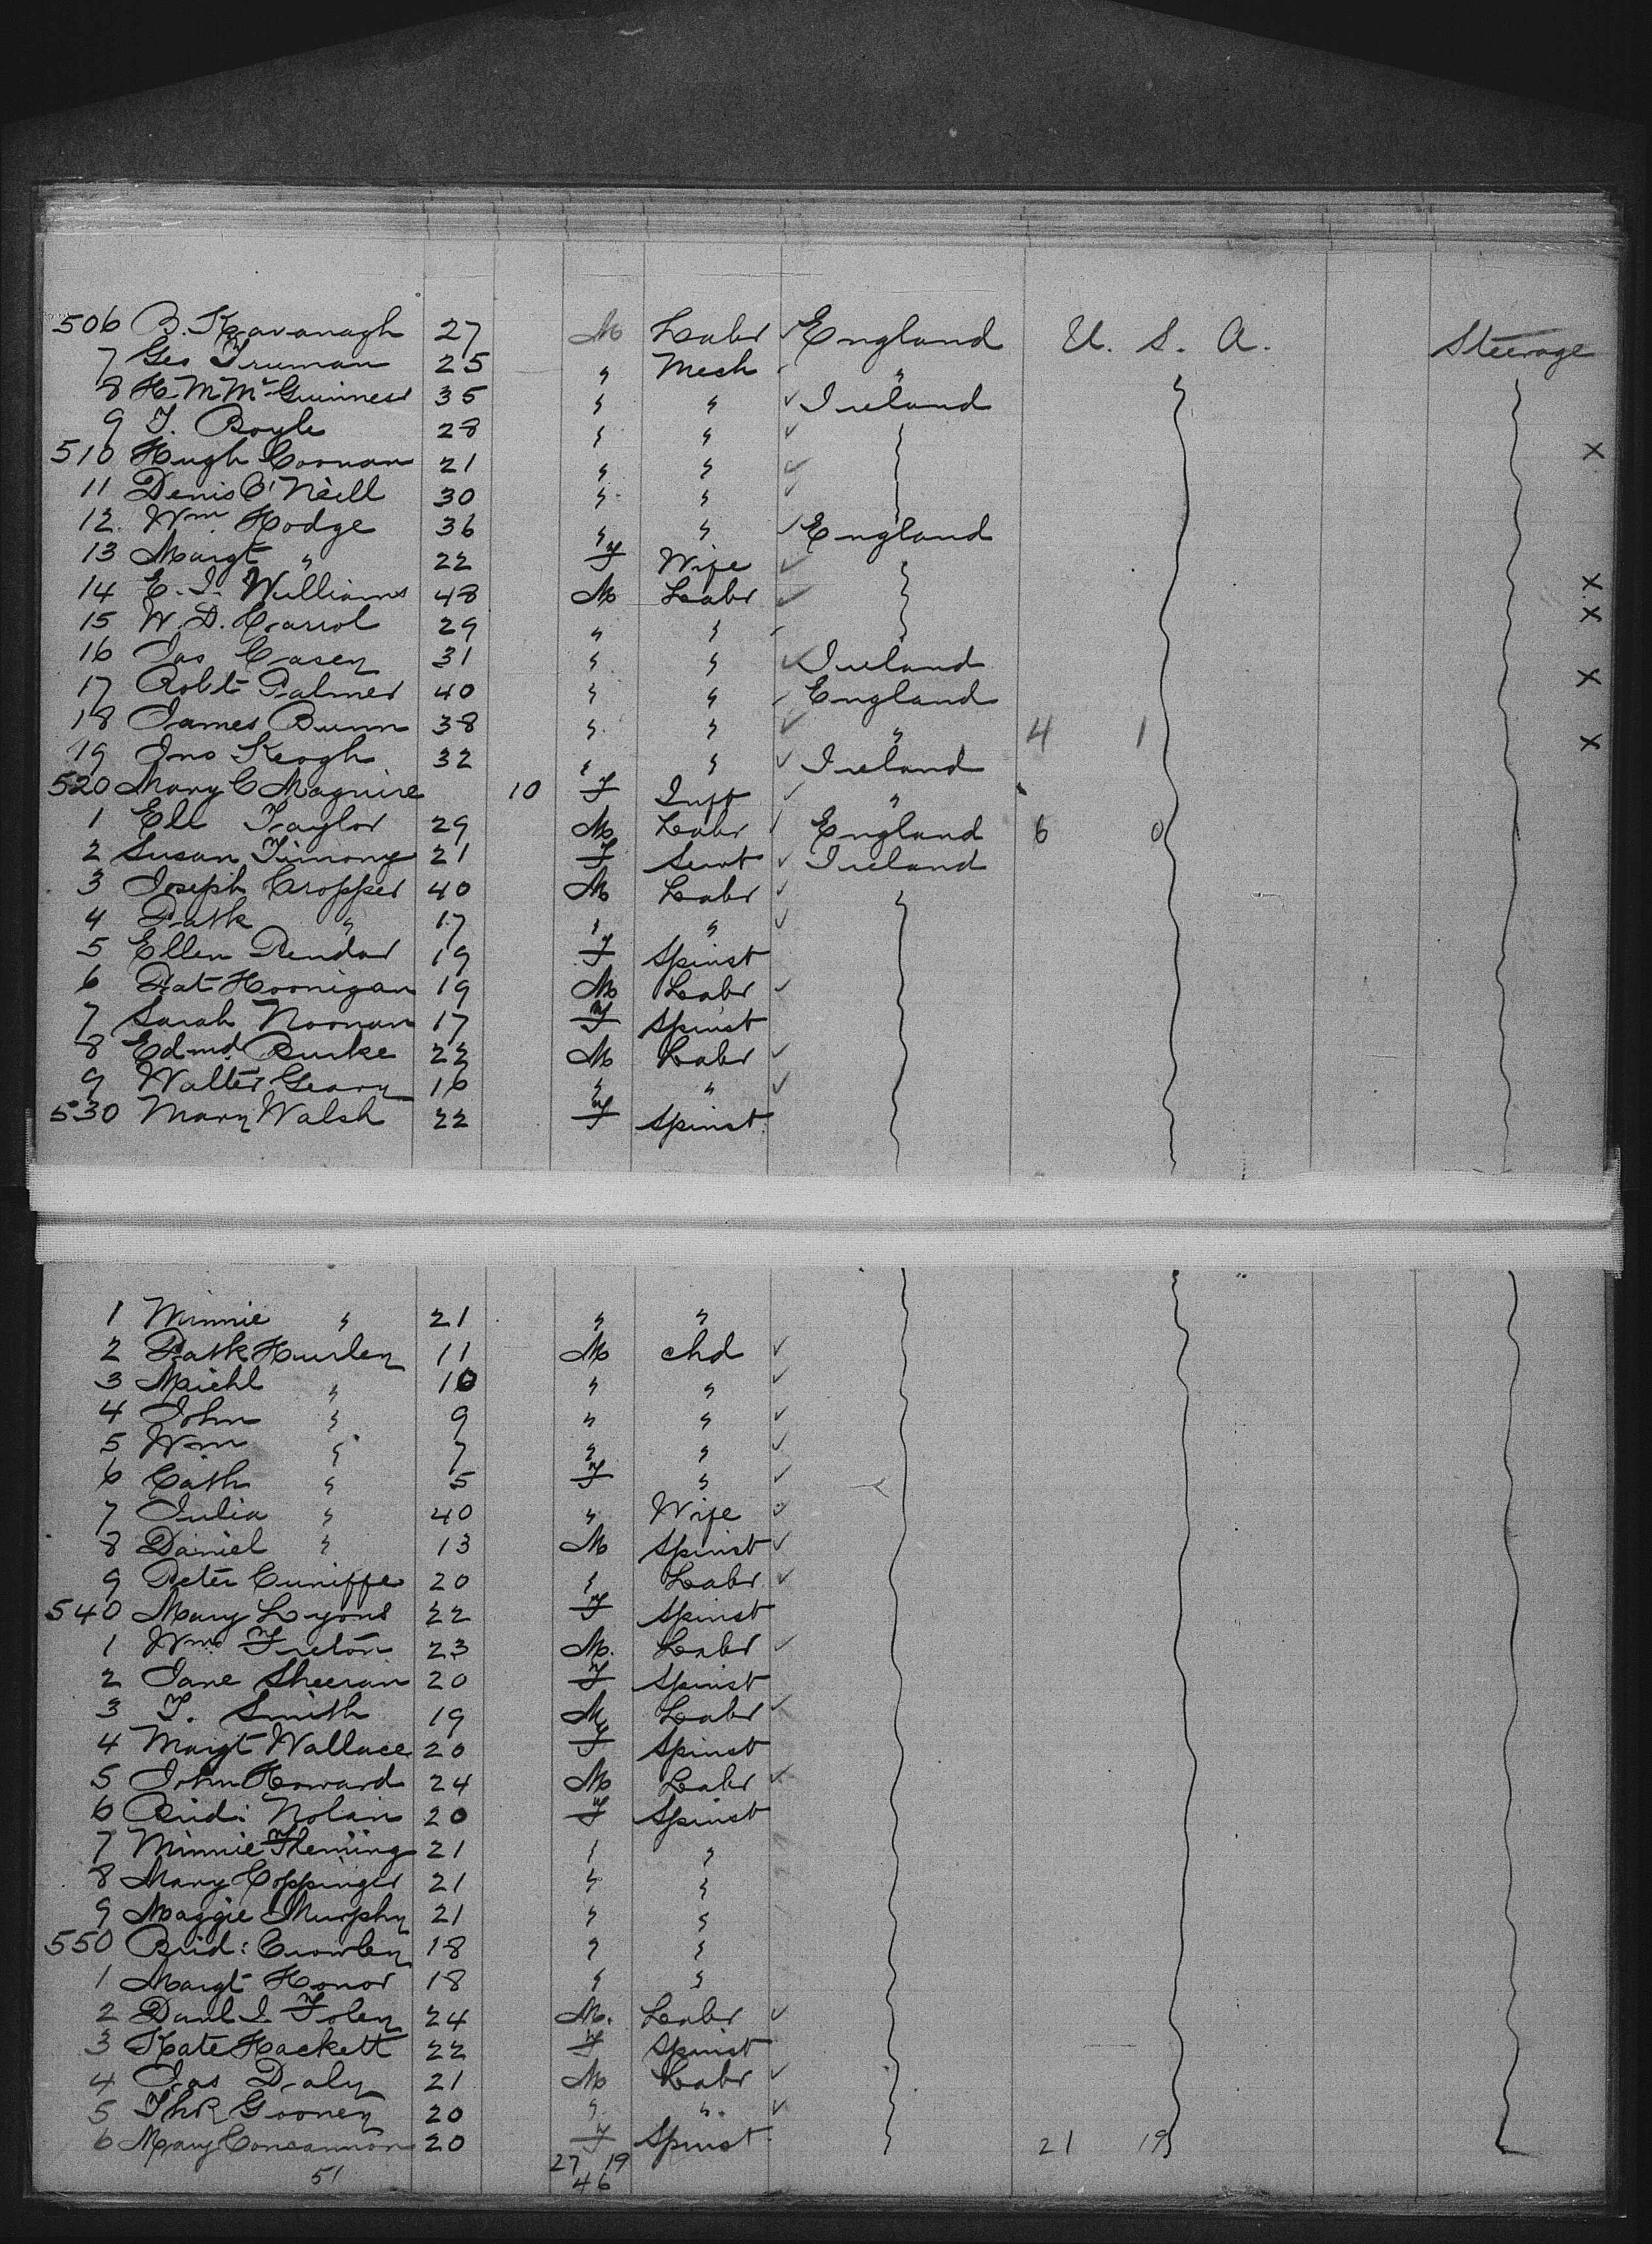 506 B. Kavanagh 27 M Labr ✓ England U. S. A. Steerage
7 Geo Truman 25 " Mech "
8 H. McGuinness 35 " " ✓ Ireland
9 T. Boyle 28 " " ✓
510 Hugh Coonan 21 " " ✓ x
11 Denis O'Neill 30 " " ✓
12 Wm Hodge 36 " " ✓ England
13 Margt " 22 F Wife ✓ "
14 E. J. Williams 48 M Labr ✓ x
15 W. D. Carrol 29 " " x
16 Jas Casey 31 " " ✓ Ireland
17 Robt Palmer 40 " " England x
18 James Bunn 38 " " ✓ " 4 1
19 Jno Keogh 32 " " ✓ Ireland x
520 Mary C Maguire 10 F Inft ✓ "
1 Ell Taylor 29 M Labr England 6 0
2 Susan Timony 21 F Servt ✓ Ireland
3 Joseph Cropper 40 M Labr ✓ "
4 Patk " 17 " " ✓
5 Ellen 19 F Spinst
6 Pat Hoonigan 19 M Labr ✓
7 Sarah Noonan 17 F Spinst
8 Edmd Burke 22 M Labr ✓
9 Walter Geary 16 " " ✓
530 Mary Walsh 22 F Spinst
1 Minnie " 21 " "
2 Patk Hurley 11 M chd ✓
3 Michl " 10 " " ✓
4 John " 9 " " ✓
5 Wm " 7 " " ✓
6 Cath " 5 F " ✓
7 Julia " 40 " Wife ✓
8 Daniel " 13 M Spinst ✓
9 Peter Cuniffe 20 " Labr ✓
540 Mary Lyons 22 F Spinst
1 Wm 23 M. Labr ✓
2 Jane Sheeran 20 F Spinst
3 T. Smith 19 M Labr ✓
4 Margt Wallace 20 F Spinst
5 John Howard 24 M Labr ✓
6 Brid: Nolan 20 F Spinst
7 Minnie Fleming 21 " "
8 Mary Coppinger 21 " "
9 Maggie Murphy 21 " "
550 Brid: Crowley 18 " "
1 Margt Honor 18 " "
2 Danl J Foley 24 M. Labr ✓
3 Kate Hackett 22 F Spinst
4 Jas Daly 21 M Labr ✓
5 Gooney 20 " " ✓
6 Mary Concannon 20 F Spinst 21 19
51 27 19
46